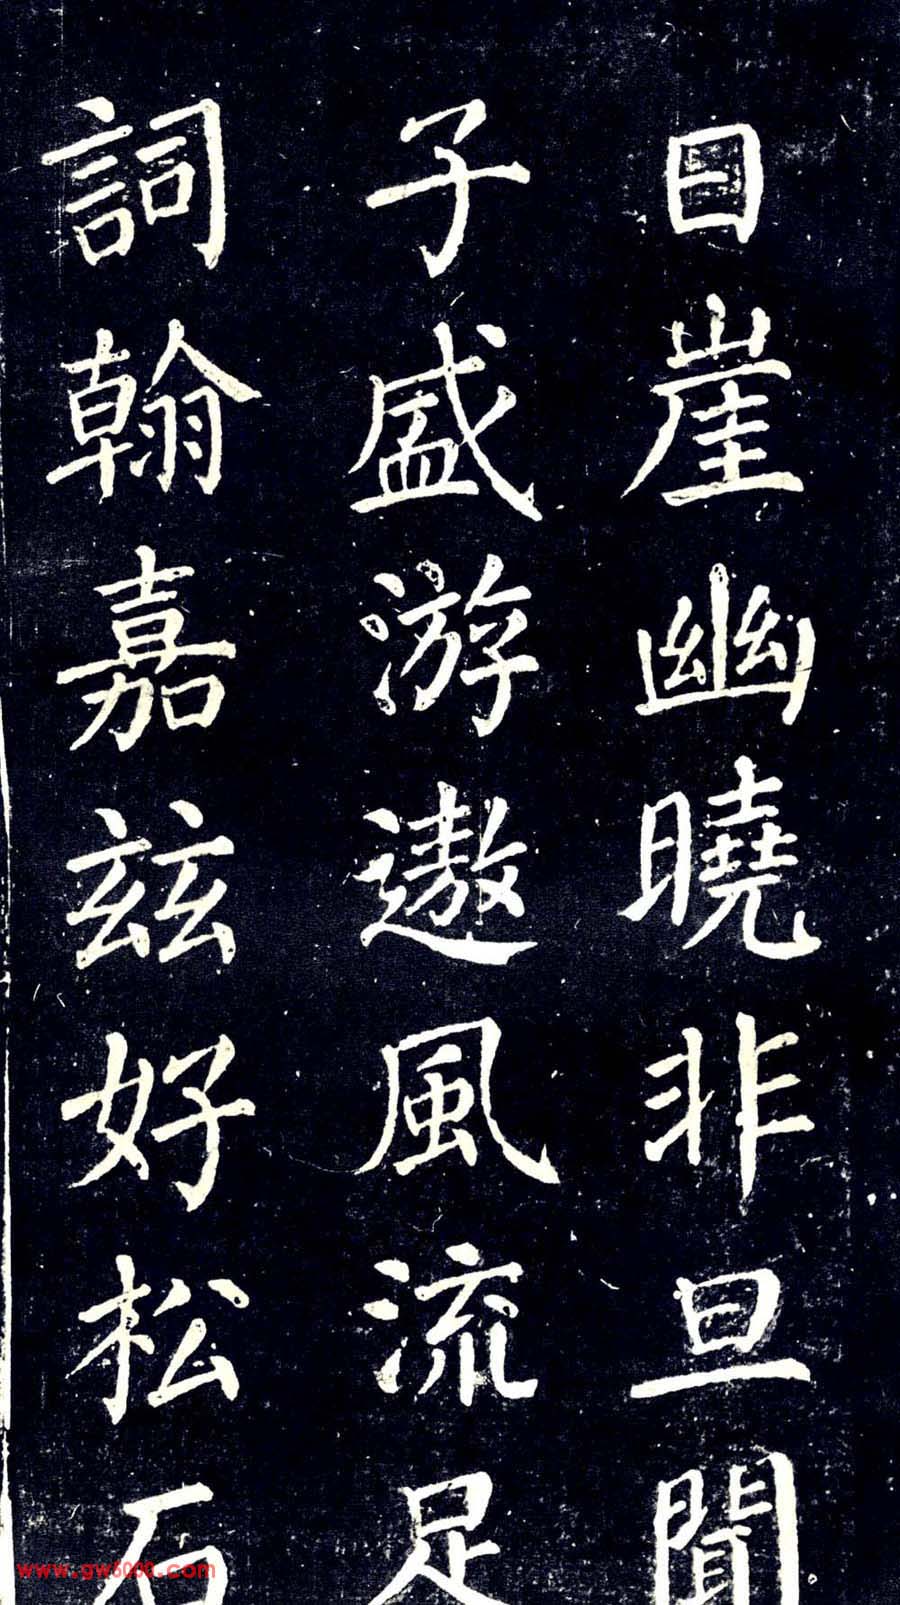 日崖幽曉非旦聞
子盛游遨風流足
詞翰嘉兹好松石
www.gw5000.com